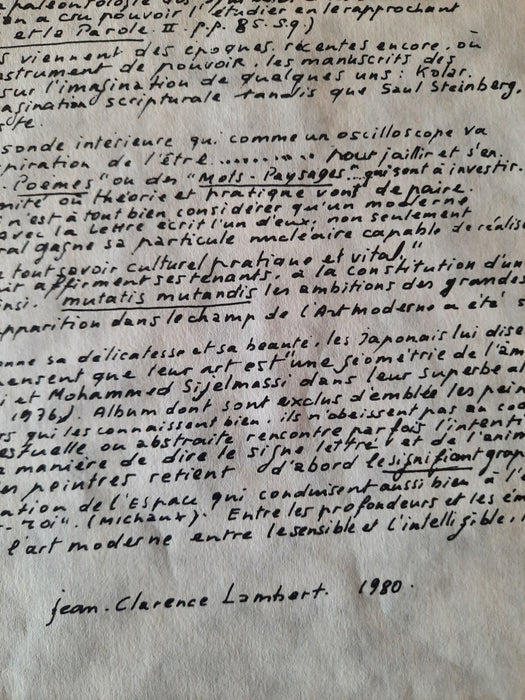 paléontologie des
on a cru pouvoir l'étudier en le rapprochant
et le Parole. II. p.p. 85. sq.)
s viennent des epoques. récentes encore, où
instrument de pouvoir. les manuscrits des
sur l'imagination de quelques uns: Kolar.
agination scripturale tandis que Saul Steinberg.
ste.
sonde intérieure qui comme un oscilloscope va
piration de l'Être........... pour jaillir et s'en.
Poemes" ou des "Mots-Paysages..." qui sont à investir.
mité où théorie et pratique vont de paire.
i n'est à tout bien considérer qu'un moderne
avec la Lettre écrit l'un d'eux, non seulement
ral gagne sa particule nucléaire capable de réalise
tout savoir culturel pratique et vital"
affirment ses tenants, à la constitution d'un
insi. "mutatis mutandis les ambitions des grandes
apparition dans le champ de l'Art moderne a été s
onne sa délicatesse et sa beauté, les Japonais lui dise
pensent que leur art est "une géométrie de l'âm
i et Mohammed Sijelmassi dans leur superbe al
1976). Album dont sont exclus d'emblée les pein
rs qui les connaissent bien, ils n'obeissent pas au co
estuelle ou abstraite rencontre parfois l'intenti
a manière de dire le signe lettré l et de l'anim
peintres retient d'abord le signifiant grap
ation de l'Espace qui conduisent aussi bien à l'é
-roi". (Michaux). Entre les profondeurs et les ém
l'art moderne entre le sensible et l'intelligible,
jean. Clarence Lambert. 1980.